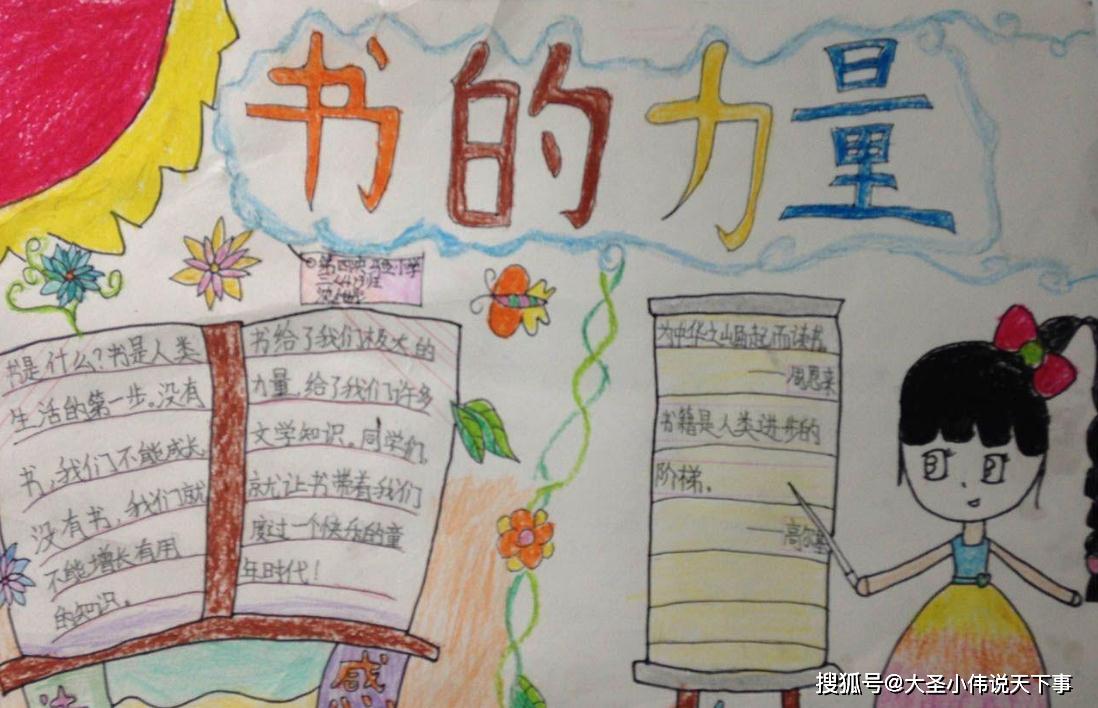 书的力量
第四实验小学
书是什么?书是人类
生活的第一步。没有
书,我们不能成长。
没有书,我们就
不能增长有用
的知识。
书给了我们极大的
力量,给了我们许多
文学知识。同学们,
就让书带着我们
度过一个快乐的童
年时代!
为中华之崛起而读书。
——周恩来
书籍是人类进步的
阶梯。
——高尔基
感
搜狐号@大圣小伟说天下事